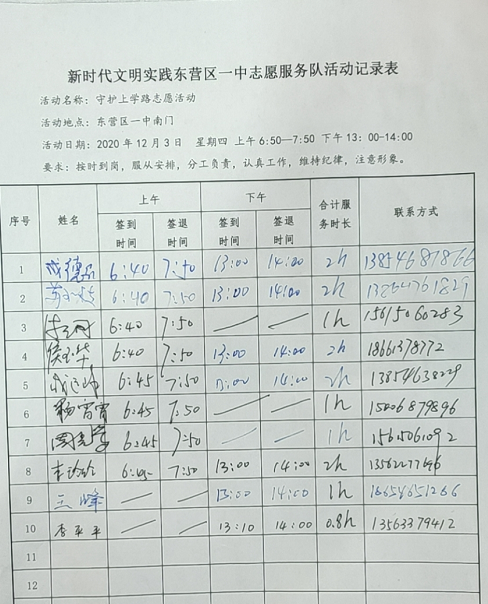 新时代文明实践东营区一中志愿服务队活动记录表
活动名称：守护上学路志愿活动
活动地点：东营区一中南门
活动日期：2020年12月3日 星期四 上午6:50—7:50 下午13:00-14:00
要求：按时到岗，服从安排，分工负责，认真工作，维持纪律，注意形象。
序号 姓名 上午 下午 合计服务时长 联系方式
签到时间 签退时间 签到时间 签退时间
1 6:40 7:50 13:00 14:00 2h 13854687866
2 6:40 7:50 13:00 14:00 2h
3 6:40 7:50 — — 1h 15615060283
4 6:40 7:50 13:00 14:00 2h 18661378772
5 6:45 7:50 13:00 14:00 2h 13854638229
6 杨霄霄 6:45 7:50 — — 1h 15006879896
7 6:45 7:50 — — 1h 15615061092
8 李玲玲 7:50 13:00 14:00 2h
9 王峰 — — 13:00 14:00 1h 18654651266
10 李平平 — — 13:10 14:00 0.8h 13563379412
11
12